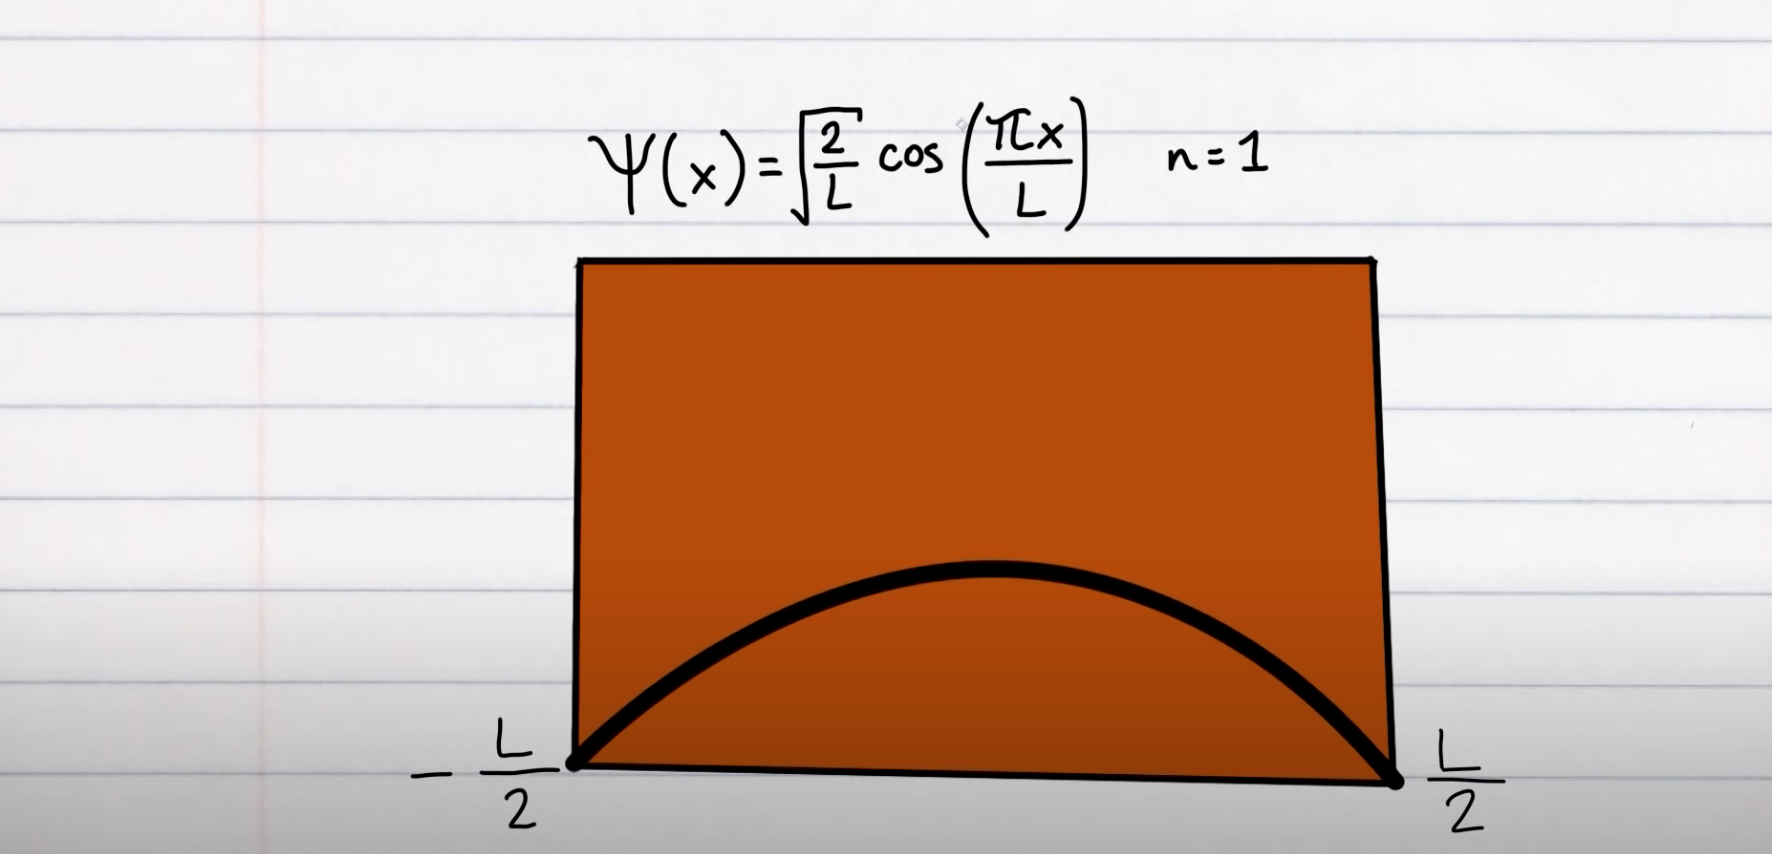 Ψ(x) = √(2/L) cos(πx/L) n = 1
− L/2
L/2